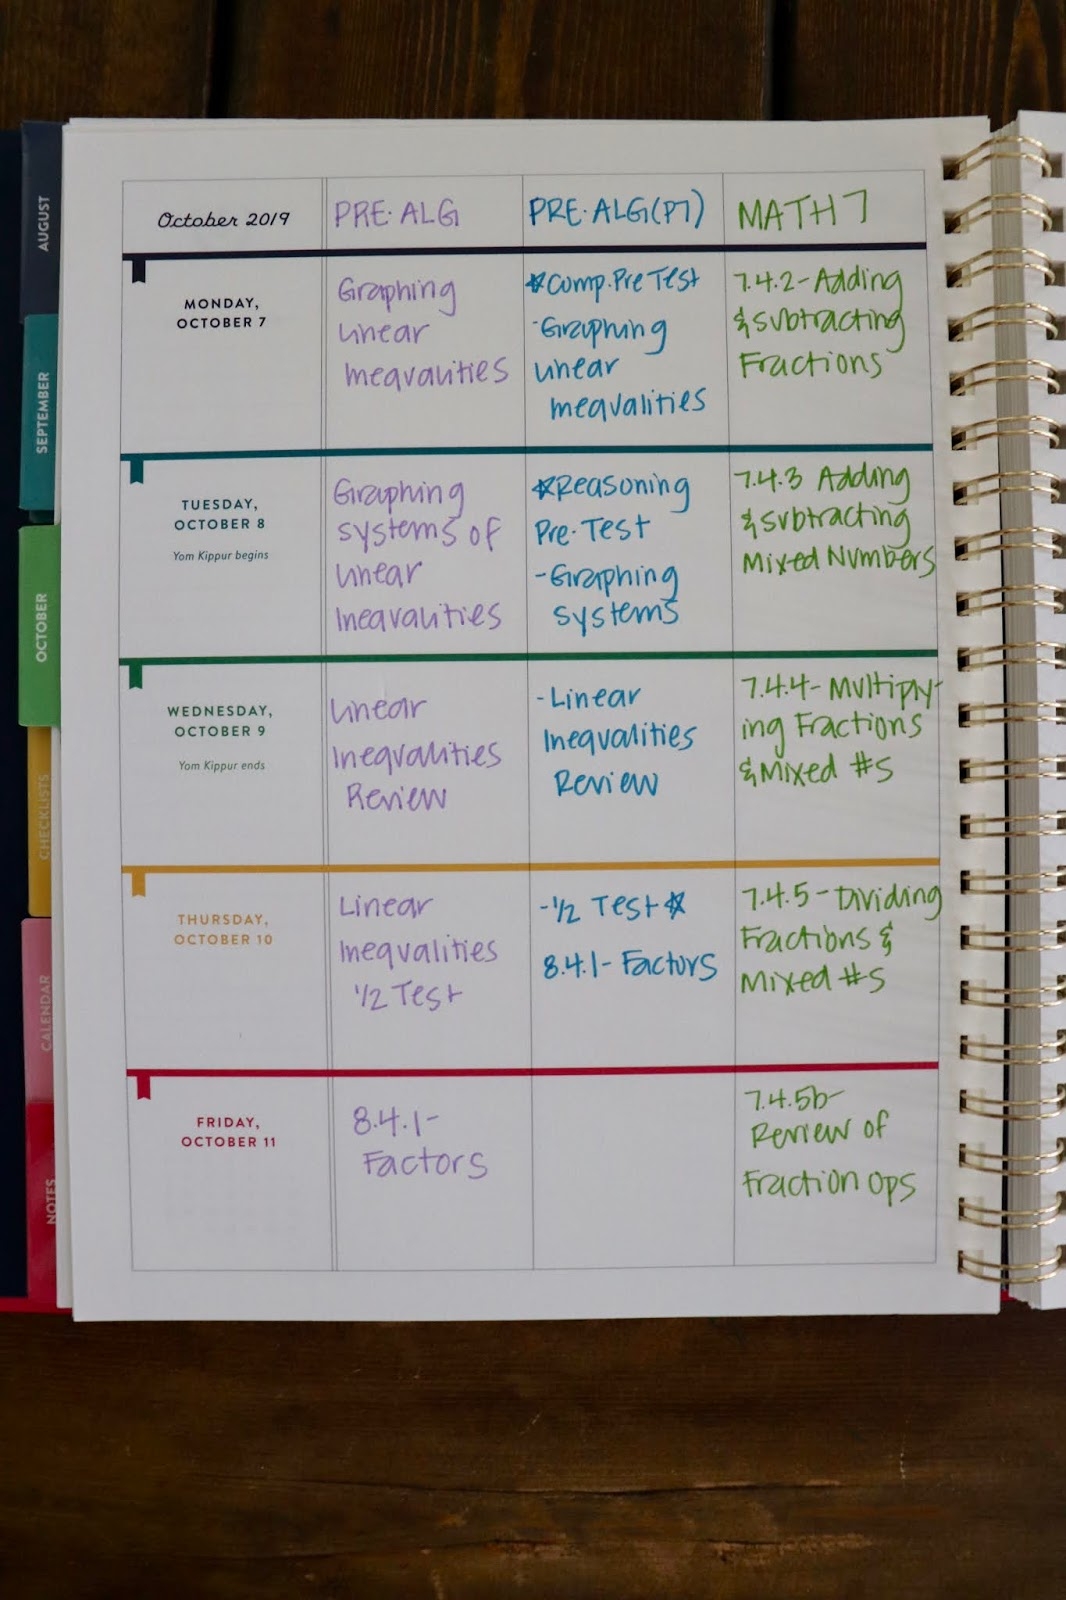 October 2019
PRE-ALG
PRE-ALG(P7)
MATH 7
MONDAY,
OCTOBER 7
Graphing
Linear
Inequalities
*Comp. Pre Test
-Graphing
Linear
Inequalities
7.4.2-Adding
&Subtracting
Fractions
TUESDAY,
OCTOBER 8
Yom Kippur begins
Graphing
Systems of
Linear
Inequalities
*Reasoning
Pre-Test
-Graphing
Systems
7.4.3 Adding
&Subtracting
Mixed Numbers
WEDNESDAY,
OCTOBER 9
Yom Kippur ends
Linear
Inequalities
Review
-Linear
Inequalities
Review
7.4.4-Multiply-
ing Fractions
&Mixed #s
THURSDAY,
OCTOBER 10
Linear
Inequalities
1/2 Test
-1/2 Test*
8.4.1-Factors
7.4.5-Dividing
Fractions &
Mixed #s
FRIDAY,
OCTOBER 11
8.4.1-
Factors
7.4.5b-
Review of
Fraction Ops
AUGUST
SEPTEMBER
OCTOBER
CHECKLISTS
CALENDAR
NOTES